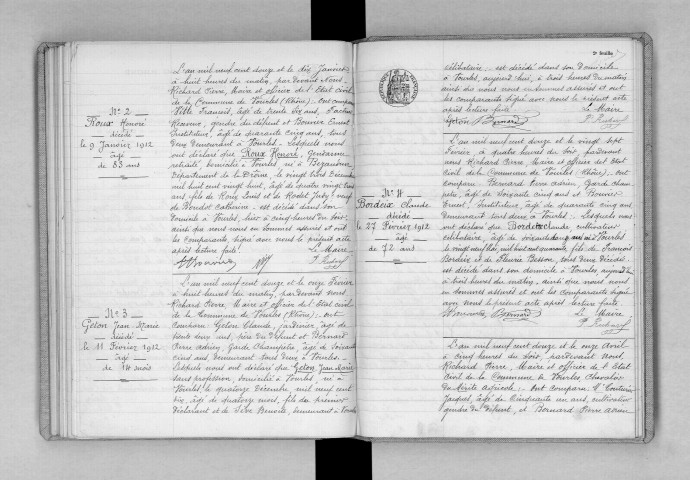 L'an mil neuf cent douze et le dix Janvier
à huit heures du matin, par devant Nous
Richard Pierre, Maire et officier de l'Etat Civil
de la Commune de Vourles (Rhône): ont comparu
François, âgé de trente six ans, facteur
gendre du défunt et Bouvier Ernest,
Instituteur, âgé de quarante cinq ans, tous
deux demeurant à Vourles. Lesquels nous
ont déclaré que Roux Honoré, Gendarme
retraité, domicilié à Vourles, né à
Département de la Drôme, le vingt trois Décembre
mil huit cent vingt huit, âgé de quatre vingt trois
ans, fils de Roux Louis et de Rodet veuf
de Catherine - est décédé dans son
domicile à Vourles, hier à cinq heures du soir.
ainsi que nous nous en sommes assurés et ont
les comparants signé avec nous le présent acte
après lecture faite. Le Maire
N° 2
Roux Honoré
décédé
le 9 Janvier 1912
âgé
de 83 ans
L'an mil neuf cent douze et le onze Février
à huit heures du matin, par devant Nous
Richard Pierre, Maire et officier de l'Etat Civil
de la Commune de Vourles (Rhône): ont
comparu: Gelon Claude, jardinier, âgé de
trente cinq ans, père du défunt et Bernard
Pierre Adrien, Garde Champêtre, âgé de soixante
cinq ans, demeurant tous deux à Vourles.
Lesquels nous ont déclaré que Gelon Jean Marie
sans profession, domicilié à Vourles, né à
Vourles, le quatorze Décembre mil neuf cent
dix, âgé de quatorze mois, fils du premier
déclarant et de Benoîte, demeurant à Vourles
N° 3
Gelon Jean Marie
décédé
le 11 Février 1912
âgé
de 14 mois
2e feuillet
célibataire: est décédé dans son domicile
à Vourles, aujourd'hui, à trois heures du matin
ainsi que nous nous en sommes assurés et ont
les comparants signé avec nous le présent acte
après lecture faite. Le Maire
Gelon Bernard
L'an mil neuf cent douze et le vingt sept
Février, à quatre heures du soir, par devant
nous Richard Pierre, Maire et officier de l'Etat
Civil de la Commune de Vourles (Rhône): ont
comparu: Bernard Pierre Adrien, Garde Cham-
pêtre, âgé de soixante cinq ans et Bouvier
Ernest, Instituteur, âgé de quarante cinq ans
demeurant tous deux à Vourles. Lesquels nous
ont déclaré que Bordeix Claude, cultivateur
célibataire, âgé de soixante douze ans né à Vourles
le vingt neuf mai mil huit cent quarante, fils de François
Bordeix et de Fleurie Besson, tous deux décédés:
est décédé dans son domicile à Vourles, aujourd'hui
à trois heures du matin, ainsi que nous nous
en sommes assurés et ont les comparants signé
avec nous le présent acte après lecture faite.
Bernard Le Maire
N° 4
Bordeix Claude
décédé
le 27 Février 1912
âgé
de 72 ans
L'an mil neuf cent douze et le onze Avril
à cinq heures du soir, par devant Nous,
Richard Pierre, Maire et officier de l'Etat
Civil de la Commune de Vourles Chevalier
du Mérite Agricole: ont comparu
Jacques, âgé de cinquante un ans, cultivateur
gendre du défunt, et Bernard Pierre Adrien